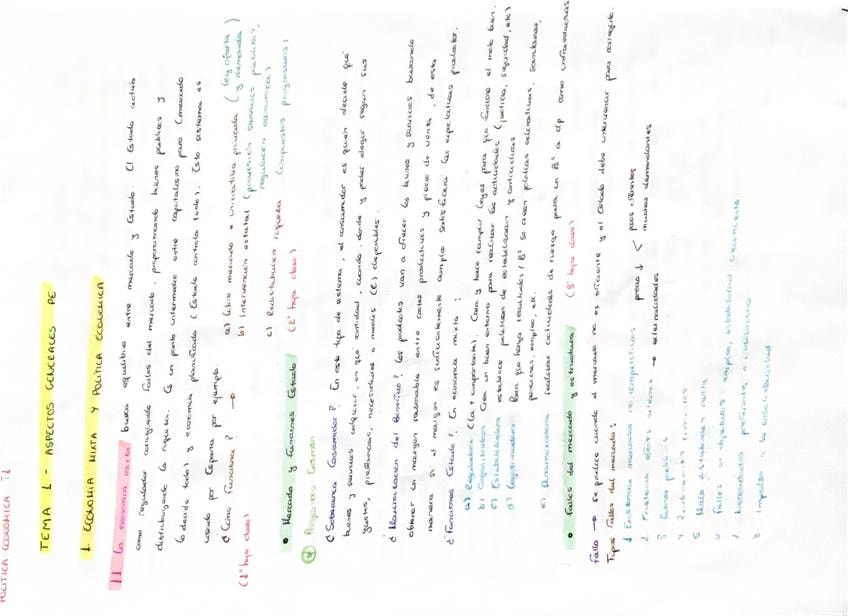 POLITICA ECONOMICA T1
TEMA 1 - ASPECTOS GENERALES DE
1. ECONOMIA MIXTA Y POLITICA ECONOMICA
1.1 La economia mixta busca equilibrio entre mercado y Estado. El Estado actúa
como regulador corrigiendo fallos del mercado, proporcionando bienes publicos y
distribuyendo la riqueza. Es un punto intermedio entre capitalismo puro (mercado
lo decide todo) y economia planificada (Estado controla todo). Este sistema es
usado por España por ejemplo.
¿Cómo funciona? → a) Libre mercado e iniciativa privada (ley oferta y demanda)
b) Intervencion estatal (provisión servicios publicos, regulacion economica)
c) Redistribucion riqueza (impuestos progresivos)
(1ª hoja clase)
• Mercado y funciones Estado (2ª hoja clase)
Preguntas Examen
¿Soberania Consumidor? En este tipo de sistema, el consumidor es quien decide qué
bienes y servicios adquirir, en qué cantidad, cuando, donde y poder elegir según sus
gustos, preferencias, necesidades o medios (€) disponibles.
¿Maximizacion del Beneficio? Los productores van a ofrecer los bienes y servicios buscando
obtener un margen razonable entre costes productivos y precio de venta, de esta
manera si el margen es suficientemente amplio satisfacera las expectativas productor.
¿Funciones Estado? En economia mixta:
a) Reguladora (la + importante). Crea y hace cumplir leyes para que funcione el meto bien.
b) Organizadora Crea un buen entorno para realizar las actividades (justicia, seguridad, etc)
c) Estabilizadora establece politicas de estabilizacion y anticiclicas
d) Legitimadora Para que haya resultados / Bº se crean politicas educativas, sanitarias,
pensiones, empleo, etc.
e) Dinamizadora realizar actividades de riesgo para un Bº a l/p como infraestructuras
• Fallos del mercado y estructura (3ª hoja clase)
Fallo → Se produce cuando el mercado no es eficiente y el Estado debe intervenir para corregirlo.
Tipos Fallos del mercado:
1 Existencia mercados no competitivos precio ↓ < pocos oferentes
muchos demandantes
2 Existencia efectos externos → externalidades
3 Bienes publicos
4 Rendimientos crecientes
5 Mala distribucion renta
6 Fallos en objetivos empleo, estabilidad, crecimiento
7 Necesidades preferentes o indeseables
8 Impulso a la estabilidad